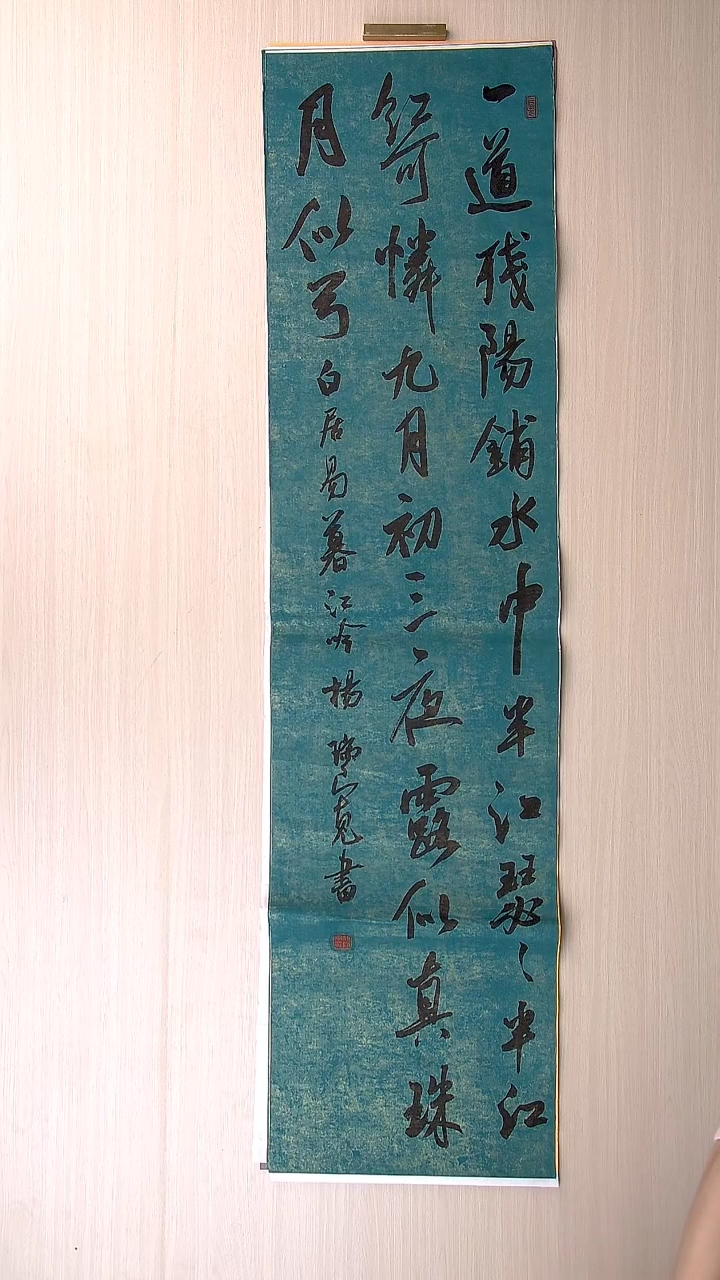 一道残陽鋪水中半江瑟々半江
紅可憐九月初三夜露似真珠
月似弓白居易暮江吟楊瑞亮書